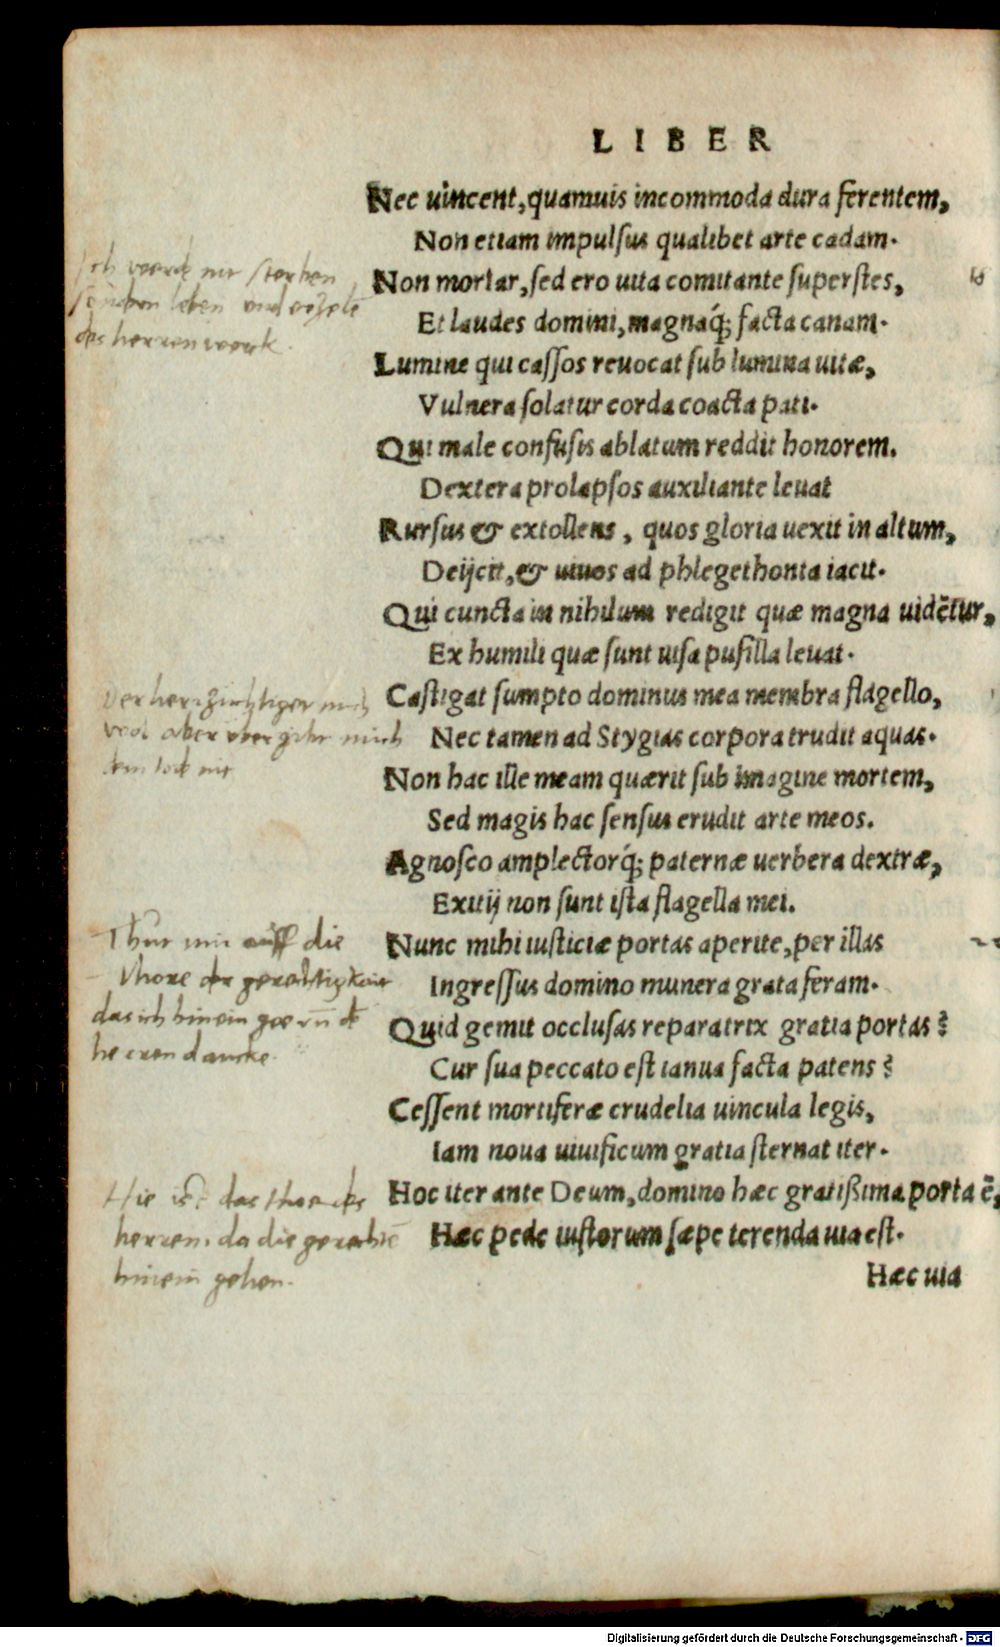 LIBER
Nec uincent, quamuis incommoda dura ferentem,
Non etiam impulsus qualibet arte cadam.
Non moriar, sed ero uita comitante superstes,
Et laudes domini, magnaq́; facta canam.
Lumine qui cassos reuocat sub lumina uitæ,
Vulnera solatur corda coacta pati.
Qui male confusis ablatum reddit honorem.
Dextera prolapsos auxiliante leuat
Rursus & extollens, quos gloria uexit in altum,
Deijcit, & uiuos ad phlegethonta iacit.
Qui cuncta in nihilum redigit quæ magna uidētur,
Ex humili quæ sunt uisa pusilla leuat.
Castigat sumpto dominus mea membra flagello,
Nec tamen ad Stygias corpora trudit aquas.
Non hac ille meam quærit sub imagine mortem,
Sed magis hac sensus erudit arte meos.
Agnosco amplectorq́; paternæ uerbera dextræ,
Exitij non sunt ista flagella mei.
Nunc mihi iusticiæ portas aperite, per illas
Ingressus domino munera grata feram.
Quid gemit occlusas reparatrix gratia portas?
Cur sua peccato est ianua facta patens?
Cessent mortiferæ crudelia uincula legis,
Iam noua uiuificum gratia sternat iter.
Hoc iter ante Deum, domino hæc gratißima porta ē,
Hæc pede iustorum sæpe terenda uia est.
Hæc uia
Ich werde nit sterben
leben und
des herren werk.
Der herr mich
wol aber mich
dem tod nit
Thut mir auff die
thore der gerechtigkait
das ich hinein gee
herren dancke.
Hie ist das thor des
herren. da die gerechtē
hinein gehen.
Digitalisierung gefördert durch die Deutsche Forschungsgemeinschaft - DFG